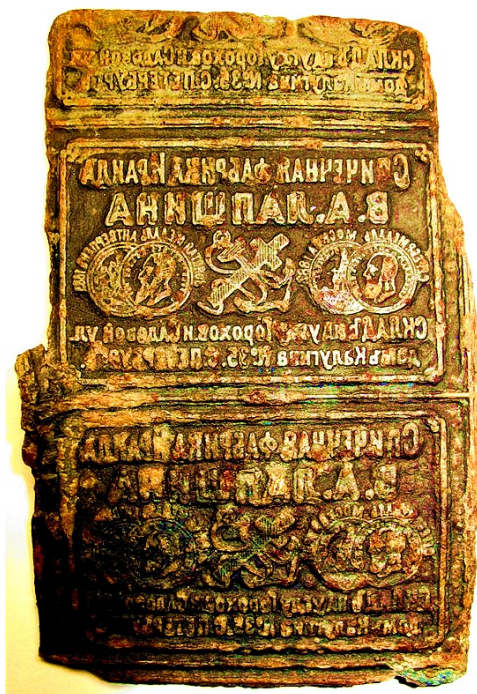 СКЛАДЪ въ углу Горохов. и Садовой ул.
домъ Калугина №35. С.ПЕТЕРБУРГЪ
СПИЧЕЧНАЯ ФАБРИКА ИРАИДА
В.А.ЛАПШИНА
СКЛАДЪ въ углу Горохов. и Садовой ул.
домъ Калугина №35. С.ПЕТЕРБУРГЪ
СПИЧЕЧНАЯ ФАБРИКА ИРАИДА
В.А.ЛАПШИНА
СКЛАДЪ въ углу Горохов. и Садовой
домъ Калугина №35. С.ПЕТЕРБ